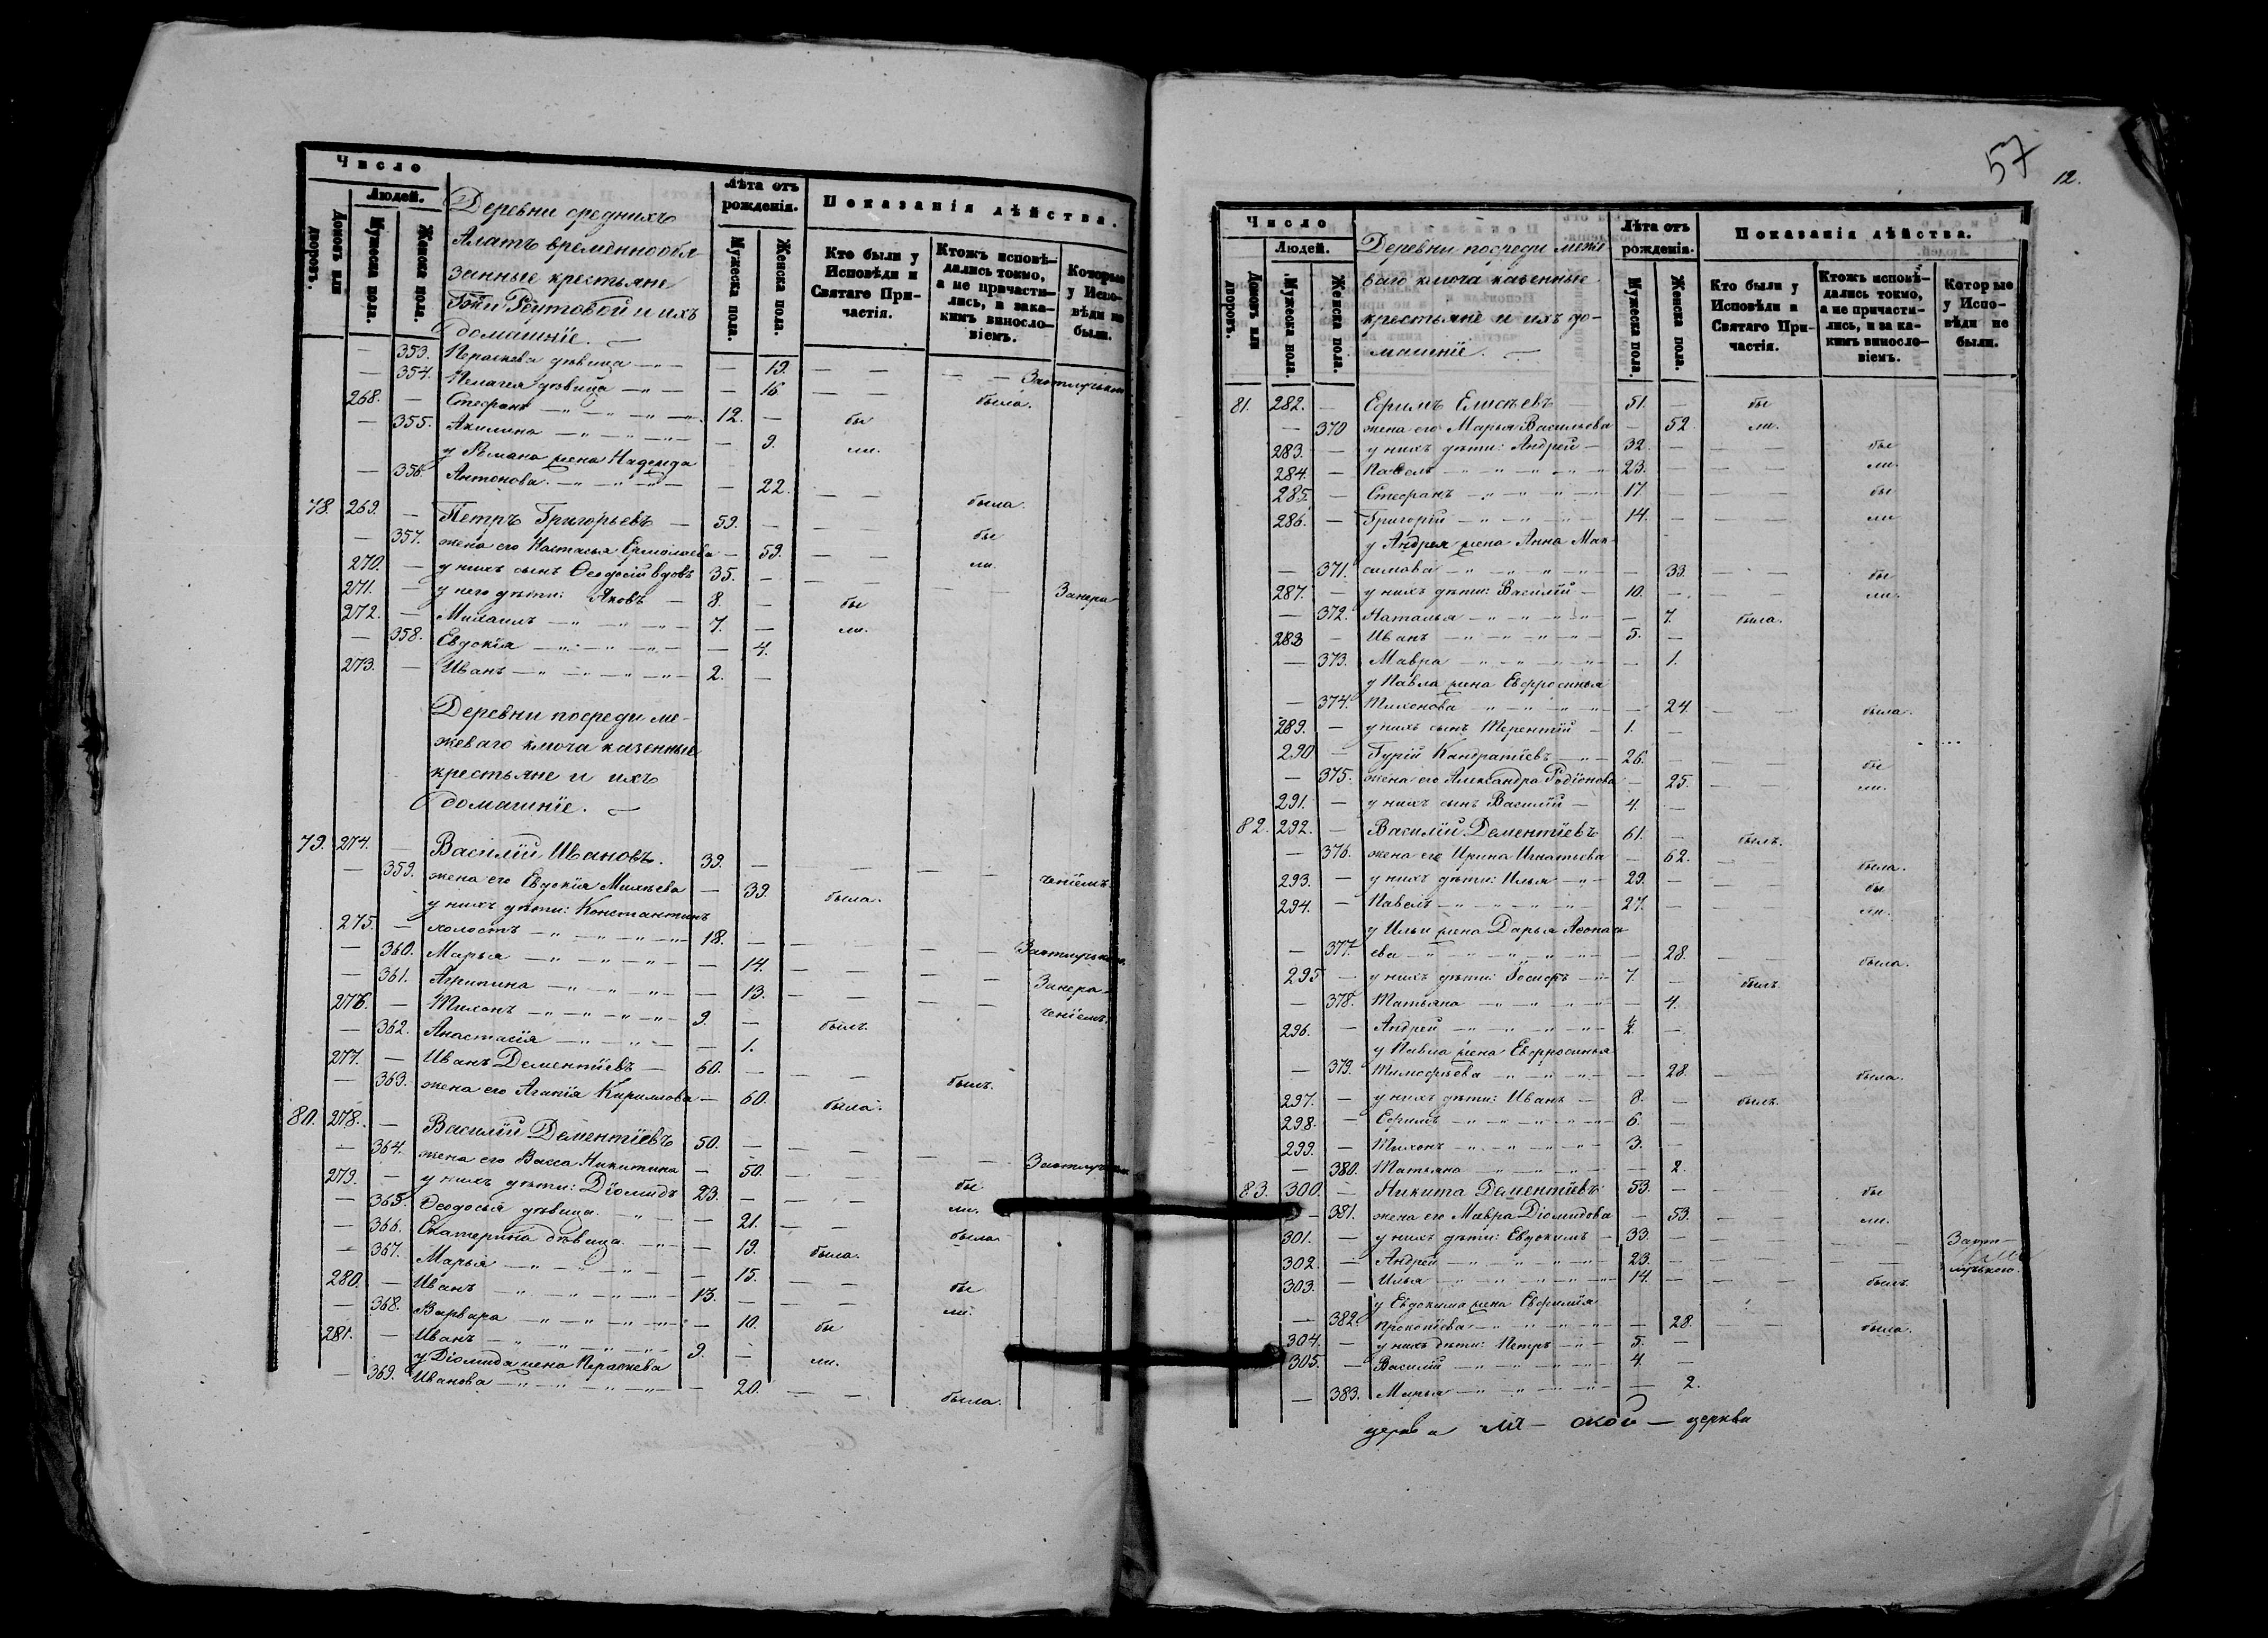 Число
Людей.
Домовъ или дворовъ.
Мужеска пола.
Женска пола.
Деревни среднихъ
Алатъ временнообя
занные крестьяне
Г-жи и ихъ
домашнїе.
Лѣта отъ рожденія.
Мужеска пола
Женска пола.
Показанія дѣйства.
Кто были у Исповѣди и Святаго Причастія.
Ктожъ исповѣдались токмо, а не причастились, и за какимъ винословіемъ.
Которые у Исповѣди не были.
— 353. Пераскева дѣвица — 19. — — Заотлучкою
— 354. Пелагея дѣвица — 16. — — была.
268. — Стефанъ 12. — бы
— 355. Акилина — 9. ли.
у Романа жена Надежда
— 356. Антонова. — 22. — — была.
78. 269. — Петръ Григорьевъ — 59. — — бы
— 357. жена его Настасья Ермолаева — 59. — — ли.
270. — у нихъ сынъ Ѳеодосій вдовъ 35. — — — Занера
271. — у него дѣти: Яковъ — 8. — бы
272. — Михаилъ 7. — ли.
— 358. Евдокїя — 4.
273. — Иванъ 2. —
Деревни посреди ме-
жеваго ключа казенные
крестьяне и ихъ
домашнїе.
79. 274. — Василїй Ивановъ. 39. — — — — ченїемъ.
— 359. жена его Евдокїя Михѣева — 39. была.
у нихъ дѣти: Константинъ
275. — холостъ 18. — — — Заотлучкою.
— 360. Марья — 14. — — — Занера-
— 361. Агрипина — 13. — — — ченїемъ.
276. — Тихонъ 9. — былъ.
— 362. Анастасїя — 1.
277. — Иванъ Дементїевъ — 60. — — — былъ.
— 363. жена его Агапїя Кириллова — 60. была.
80. 278. — Василїй Дементїевъ 50. — — — — Заотлучкою.
— 364. жена его Васса Никитина — 50. — — бы
279. — у нихъ дѣти: Дїомидъ 23. — — — ли.
— 365. Ѳеодосья дѣвица. — 21. — — была.
— 366. Екатерина дѣвица. — 19. была.
— 367. Марья — 15. — — бы
280. — Иванъ 13. — — — ли.
— 368. Варвара — 10. бы
281. — Иванъ 9. — ли.
у Дїомида жена Пераскева
— 369. Иванова — 20. — — была.
57
12.
Число
Людей.
Домовъ или дворовъ.
Мужеска пола.
Женска пола.
Деревни посреди меже
ваго ключа казенные
крестьяне и ихъ до-
машнїе.
Лѣта отъ рожденія.
Мужеска пола.
Женска пола.
Показанія дѣйства.
Кто были у Исповѣди и Святаго Причастія.
Ктожъ исповѣдались токмо, а не причастились, и за какимъ винословіемъ.
Которые у Исповѣди не были.
81. 282. — Ефимъ Елисѣевъ 51. — бы
— 370 жена его Марья Васильева — 52. ли.
283. — у нихъ дѣти: Андрей — 32. — — — бы
284. — Павелъ 23. — — — ли.
285. — Стефанъ 17. — — — бы
286. — Григорїй 14. — — — ли
у Андрея жена Анна Мак-
— 371. симова — 33. — — бы
287. — у нихъ дѣти: Василїй — 10. — ли.
— 372. Наталья — 7. была.
288 — Иванъ 5. —
— 373. Мавра — 1.
у Павла жена Евфросинья
— 374. Тихонова — 24. — — была.
289. — у нихъ сынъ Терентїй — 1. —
290 — Гурїй Кандратїевъ 26. — — — бы
— 375. жена его Александра Родїонова — 25. — — ли.
291. — у нихъ сынъ Василїй — 4. —
82. 292. — Василїй Дементїевъ 61. — былъ.
— 376. жена его Ирина Игнатьева — 62. — была.
293. — у нихъ дѣти: Илья 29. — — — бы
294. — Павелъ 27. — — — ли.
у Ильи жена Дарья
— 377. ева — 28. — — была.
295 — у нихъ дѣти: Їосифъ 7. — былъ
— 378. Татьяна — 4.
296. — Андрей —
у Павла жена Евфросинья
— 379. Тимофѣева — 28. — была.
297. — у нихъ дѣти: Иванъ — 8. — былъ.
298. — Ефимъ 6. —
299. — Тихонъ 3. —
— 380. Татьяна — 2.
83. 300. — Никита Дементїевъ 53. — — — бы
— 381. жена его Мавра Дїомидова — 53. — — ли.
301. — у нихъ дѣти: Евдокимъ — 33. — — — Заот-
302. — Андрей 23. — — — лучкою.
303. — Илья 14. — — — былъ.
у Евдокима жена Евфимїя
— 382. Прокопїева — 28. — была.
304. — у нихъ дѣти: Петръ 5. —
305. — Василїй 4. —
— 383. Марья — 2.
церкви